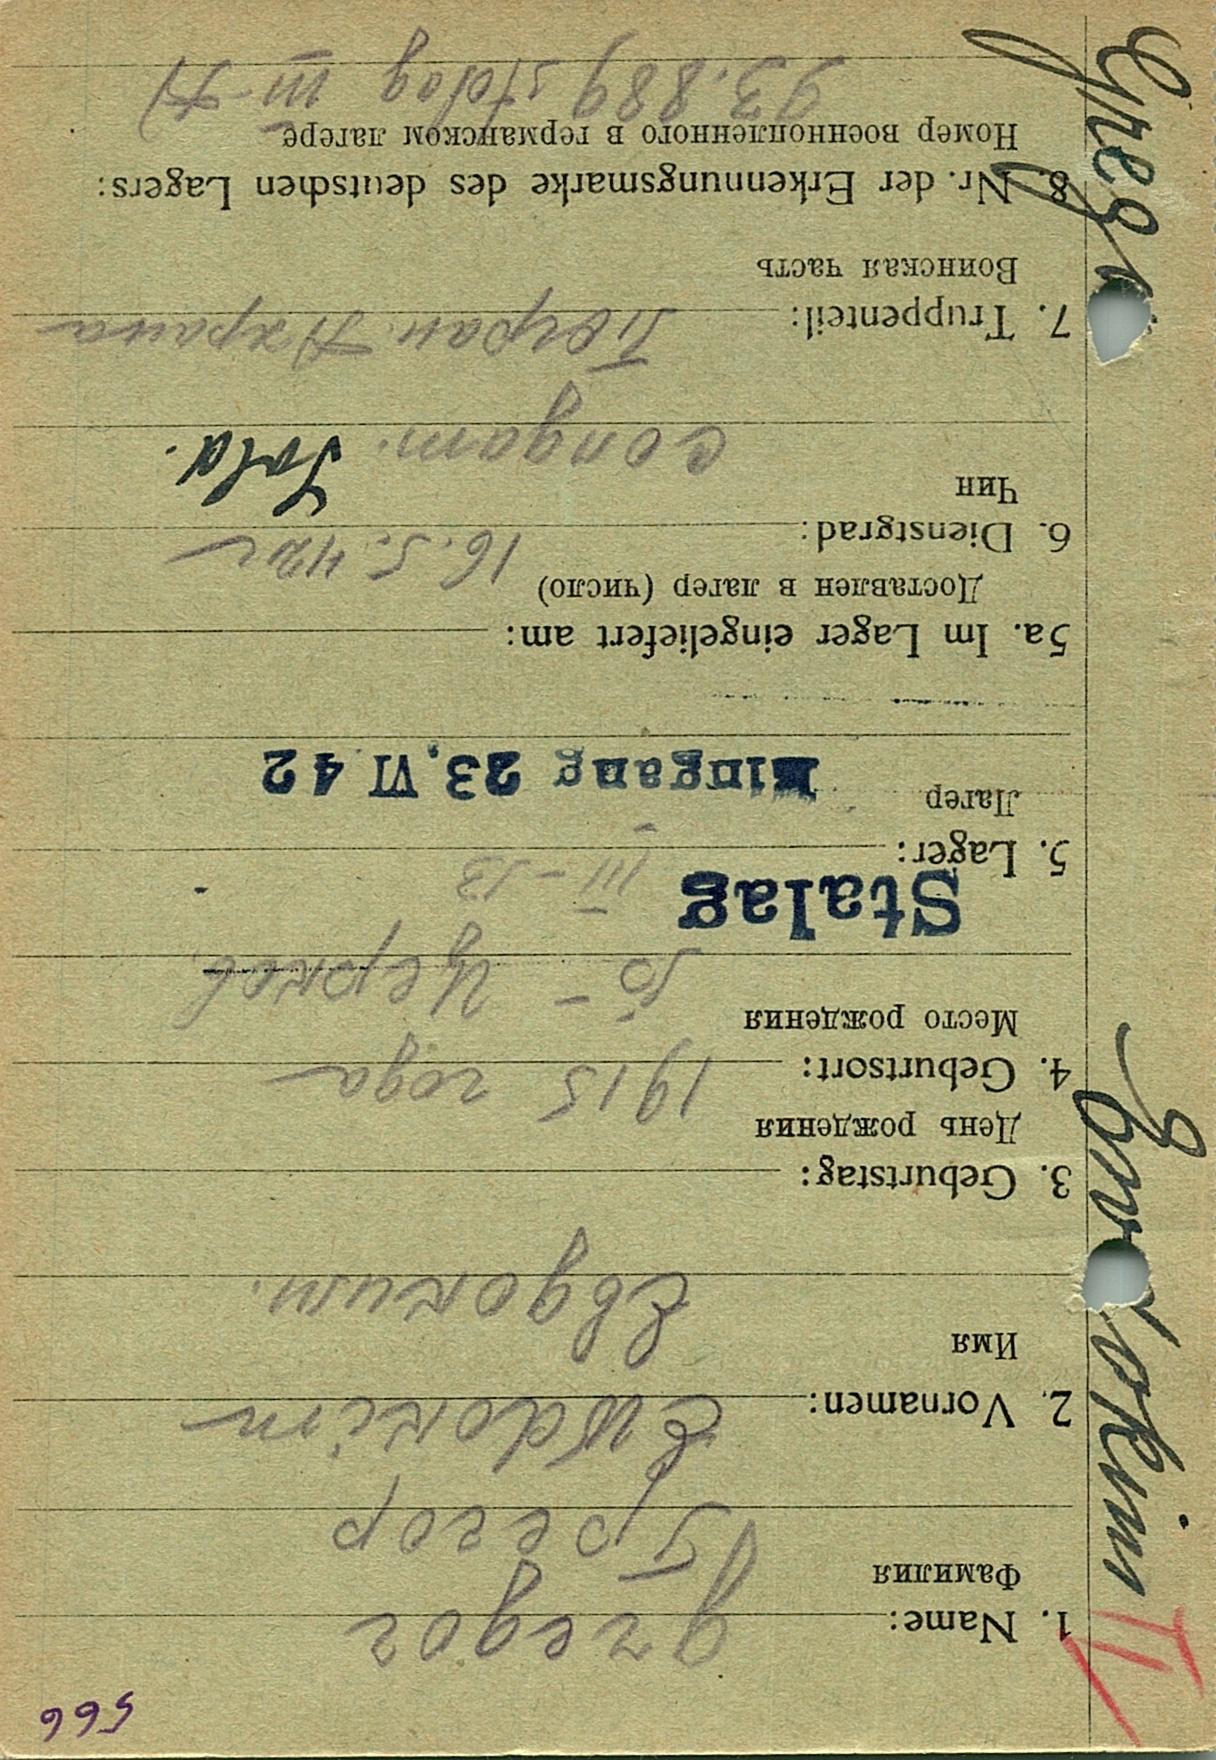 566
1. Name: gregor
Фамилия Грегор
2. Vornamen: Ewdokim
Имя Евдоким.
3. Geburtstag:
День рождения 1915 года
4. Geburtsort:
Место рождения Б - Церков.
Stalag
5. Lager: III - B
Лагер Eingang 23. VI 42
5a. Im Lager eingeliefert am:
Доставлен в лагер (число) 16.5.42г
6. Dienstgrad:
Чин солдат. Sold.
7. Truppenteil:
Воинская часть
8. Nr. der Erkennungsmarke des deutschen Lagers:
Номер военнопленного в германском лагере
93.889 stalag III-A)
Ewdokim